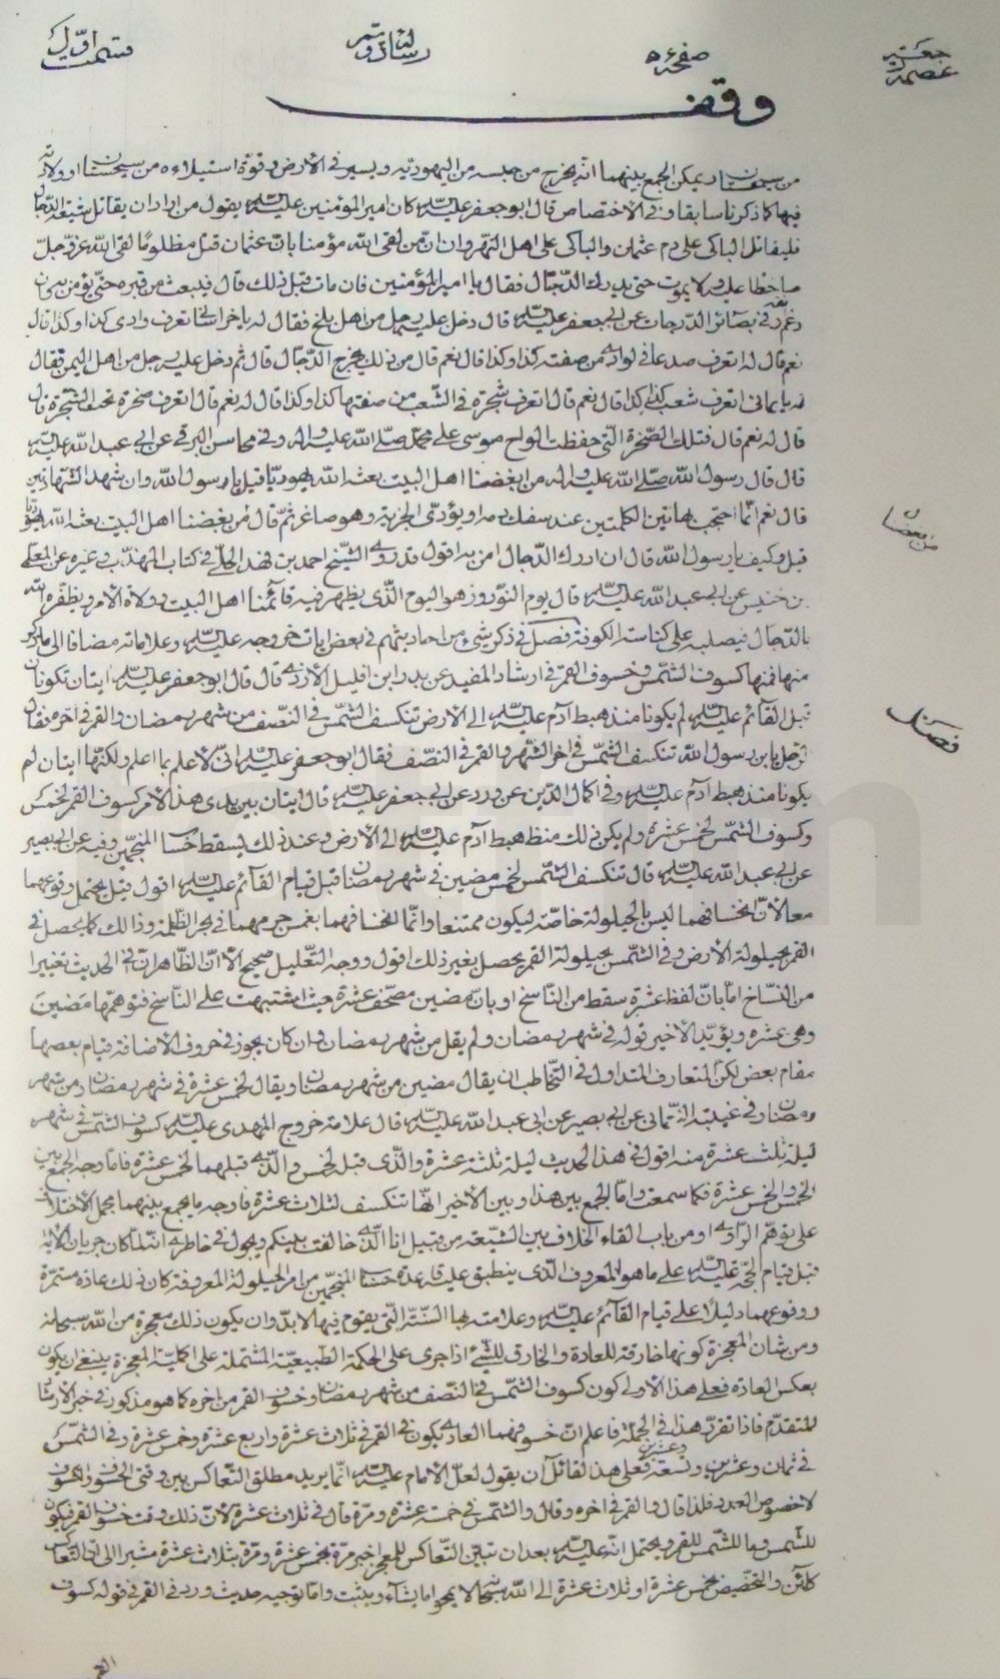 قسمت اول
صفحه ٥
وقف
من سجستان ويمكن الجمع بينهما انه يخرج من حبسه من اليهودية ويسير في الأرض وقوة استيلاءه من سجستان او ولادته
فيها كما ذكرنا سابقا وفي الاختصاص قال ابو جعفر عليه السلام كان امير المؤمنين عليه السلام يقول من اراد ان يقاتل شيعة الدجال
فليقاتل الباكي على دم عثمان والباكي على اهل النهروان ان من لقى الله مؤمنا بان عثمان قتل مظلوما لقى الله عز وجل
ساخطا عليه ولا يموت حتى يدرك الدجال فقال يا امير المؤمنين فان مات قبل ذلك قال فيبعث من قبره حتى يؤمن به وان
رغم في بصائر الدرجات عن ابي جعفر عليه السلام قال دخل عليه رجل من اهل بلخ فقال له يا خراساني تعرف وادي كذا وكذا قال
نعم قال له اتعرف صدعا في الوادي من صفته كذا وكذا قال نعم قال من ذلك يخرج الدجال قال ثم دخل عليه رجل من اهل اليمن فقال
له يا يماني اتعرف شعب كذا وكذا قال نعم قال اتعرف شجرة في الشعب من صفتها كذا وكذا قال له نعم قال اتعرف صخرة تحت الشجرة قال
قال له نعم قال فتلك الصخرة التي حفظت الواح موسى على محمد صلى الله عليه واله وفي محاسن البرقي عن ابي عبد الله عليه السلام
قال قال رسول الله صلى الله عليه واله من ابغضنا اهل البيت بعثه الله يهوديا قيل يا رسول الله وان شهد الشهادتين
قال نعم انما احتجب بهاتين الكلمتين عند سفك دمه او يؤدي الجزية وهو صاغر ثم قال من ابغضنا اهل البيت بعثه الله يهوديا
قيل وكيف يا رسول الله قال ان ادرك الدجال امن به اقول قد روى الشيخ احمد بن فهد الحلي في كتاب المهذب وغيره عن المعلى
بن خنيس عن ابي عبد الله عليه السلام قال يوم النوروز هو اليوم الذي يظهر فيه قائمنا اهل البيت وولاة الأمر ويظفره الله
بالدجال فيصلبه على كناسة الكوفة فصل في ذكر شيء من احاديثهم في بعض ايات خروجه عليه السلام وعلاماته مضافا الى ما ذكر
منها فمنها كسوف الشمس وخسوف القمر في ارشاد المفيد عن بدر ابن الخليل الازدي قال قال ابو جعفر عليه السلام ايتان تكونان
قبل القائم عليه السلام لم يكونا منذ هبط آدم عليه السلام الى الأرض تنكسف الشمس في النصف من شهر رمضان والقمر في اخره فقال
رجل يا بن رسول الله تنكسف الشمس في اخر الشهر والقمر في النصف فقال ابو جعفر عليه السلام اني لأعلم بما اعلم ولكنهما ايتان لم
يكونا منذ هبط آدم عليه السلام وفي اكمال الدين عن ورد عن ابي جعفر عليه السلام قال ايتان بين يدي هذا الأمر كسوف القمر لخمس
وكسوف الشمس لخمس عشرة ولم يكن ذلك منذ هبط آدم عليه السلام الى الأرض وعند ذلك يسقط حساب المنجمين وفيه عن ابي بصير
عن ابي عبد الله عليه السلام قال تنكسف الشمس لخمس مضين في شهر رمضان قبل قيام القائم عليه السلام اقول قيل يحتمل وقوعهما
معا لأن انخسافهما ليس بالحيلولة خاصة ليكون ممتنعا وانما انخسافهما بغمس جرمهما في بحر الظلمة وذالك كما يحصل في
القمر بحيلولة الأرض وفي الشمس بحيلولة القمر يحصل بغير ذلك اقول ووجه التعليل صحيح الا ان الظاهر ان في الحديث تغييرا
من النساخ اما بان لفظ عشرة سقط من الناسخ او بان مضين مصحف عشرة حيث اشتبهت على الناسخ فتوهمها مضين
وهي عشرة ويؤيد الأخير قوله في شهر رمضان ولم يقل من شهر رمضان وان كان يجوز في حروف الاضافة قيام بعضها
مقام بعض لكن المتعارف المتداول في التخاطب ان يقال مضين من شهر رمضان ويقال لخمس عشرة في شهر رمضان ومن شهر
رمضان وفي غيبة النعماني عن ابي بصير عن ابي عبد الله عليه السلام قال علامة خروج المهدي عليه السلام كسوف الشمس في شهر
ليلة ثلث عشرة منه اقول في هذا الحديث ليلة ثلثة عشرة والذي قبل لخمس والذي قبلهما لخمس عشرة فاما وجه الجمع بين
الخمس والخمس عشرة فكما سمعت واما الجمع بين هذا وبين الأخير انها تنكسف لثلاث عشرة فاوجه ما يجمع بينهما محمل الاختلاف
على توهم الراوي او من باب القاء الخلاف بين الشيعة من قبيل انا الذي خالفت بينكم ويجول في خاطري انه لما كان جريان الآية
قبل قيام الحجة عليه السلام على ما هو المعروف الذي ينطبق عليه قاعدة حساب المنجمين من امر الحيلولة المعروفة كان ذلك عادة مستمرة
ووقوعهما دليلا على قيام القائم عليه السلام وعلامة لها السنة التي يقوم فيها لابد وان يكون ذلك معجزة من الله سبحانه
ومن شان المعجزة كونها خارقة للعادة والخارق للشيء اذا جرى على الحكمة الطبيعية المشتملة على اكلية المعجزة ينبغي ان يكون
بعكس العادة فعلى هذا الأولى كون كسوف الشمس في النصف من شهر رمضان وخسوف القمر من اخره كما هو مذكور في خبر الارشاد
المتقدم فاذا تقرر هذا في الجملة فاعلم ان خسوفهما العادي يكون في القمر في ثلاث عشرة واربع عشرة وخمس عشرة وفي الشمس
في ثمان وعشرين وتسعة وعشرين فعلى هذا لقائل ان يقول لعل الامام عليه السلام انما يريد مطلق التعاكس بين وقتي الخسوف والكسوف
لا خصوص العدد فلذا قال والقمر في اخره وقال والشمس في خمسة عشرة ومرة قال في ثلاث عشرة لأن ذلك وقت خسوف القمر فيكون
للشمس وما للشمس للقمر ويحتمل انه عليه السلام بعد ان تبين التعاكس للمعجز اخبر مرة بخمس عشرة ومرة بثلاث عشرة مشيرا الى ان التعاكس
كائن والتخصيص بخمس عشرة او ثلاث عشرة الى الله سبحانه يمحو ما يشاء ويثبت واما توجيه حديث ورد في القمر في قوله كسوف
فصل